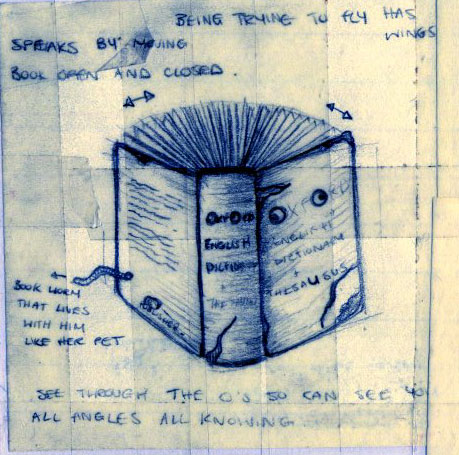 BEING TRYING TO FLY HAS
WINGS
SPEAKS BY MOVING
BOOK OPEN AND CLOSED.
OXFORD
ENGLISH
DICTIONARY
+
OXFORD
ENGLISH
DICTIONARY
+
THESAURUS
BOOK WORM
THAT LIVES
WITH HIM
LIKE HER PET
SEE THROUGH THE O'S SO CAN SEE YOU
ALL ANGLES ALL KNOWING